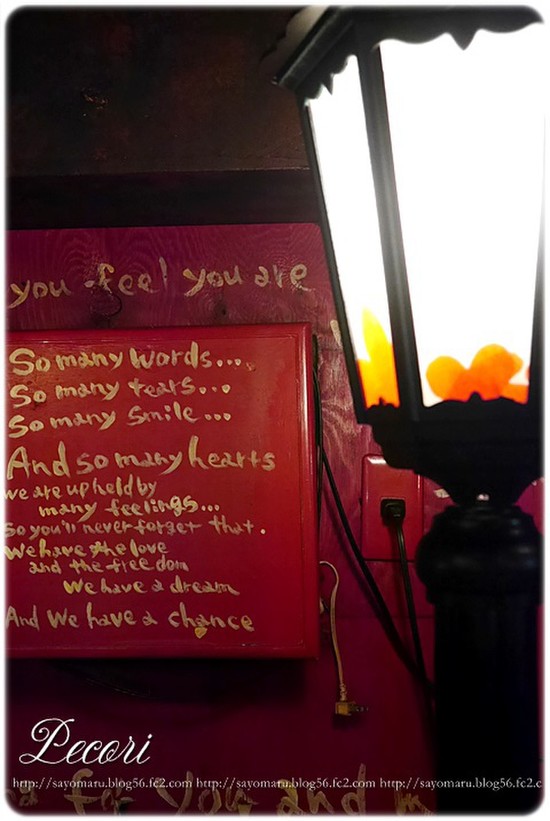 you feel you are
So many words...
So many tears...
So many smile...
And so many hearts
we are upheld by
many feelings...
So you'll never forget that.
We have the love
and the freedom
We have a dream
And We have a chance
Pecori
http://sayomaru.blog56.fc2.com http://sayomaru.blog56.fc2.com http://sayomaru.blog56.fc2.c
for you and m